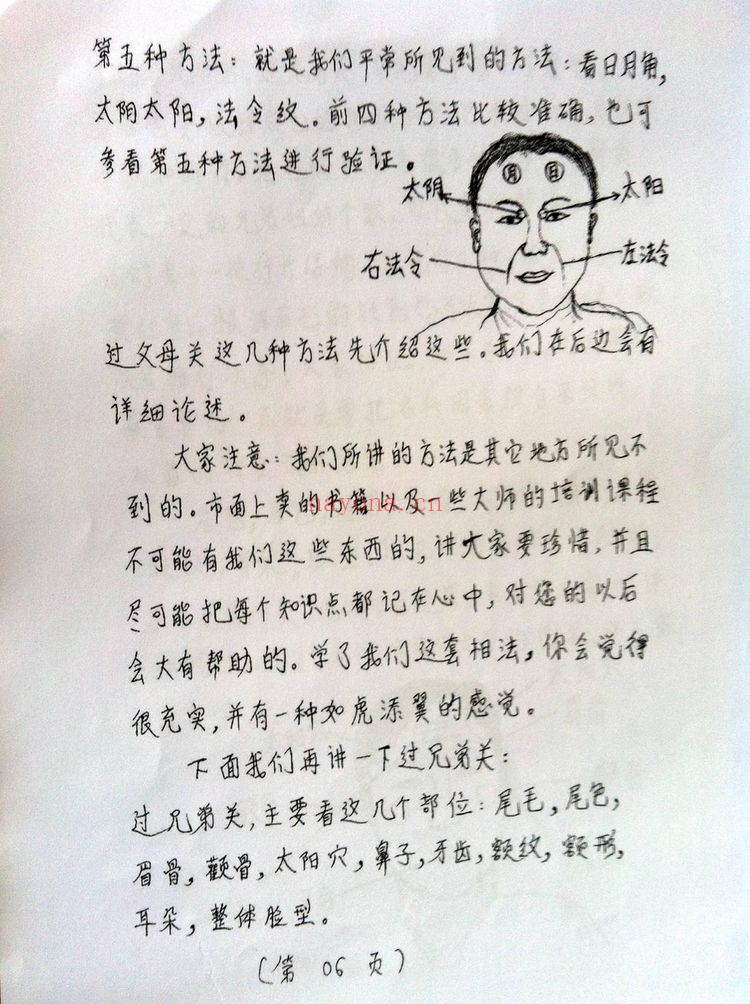 第五种方法：就是我们平常所见到的方法：看日月角，
太阴太阳，法令纹。前四种方法比较准确，也可
参看第五种方法进行验证。
月 日
太阴 太阳
右法令 左法令
过父母关这几种方法先介绍这些。我们在后边会有
详细论述。
大家注意：我们所讲的方法是其它地方所见不
到的。市面上卖的书籍以及一些大师的培训课程
nayona.cn
不可能有我们这些东西的，讲大家要珍惜，并且
尽可能把每个知识点都记在心中，对您的以后
会大有帮助的。学了我们这套相法，你会觉得
很充实，并有一种如虎添翼的感觉。
下面我们再讲一下过兄弟关：
过兄弟关，主要看这几个部位：尾毛，尾色，
眉骨，颧骨，太阳穴，鼻子，牙齿，额纹，额形，
耳朵，整体脸型。
（第 06 页）